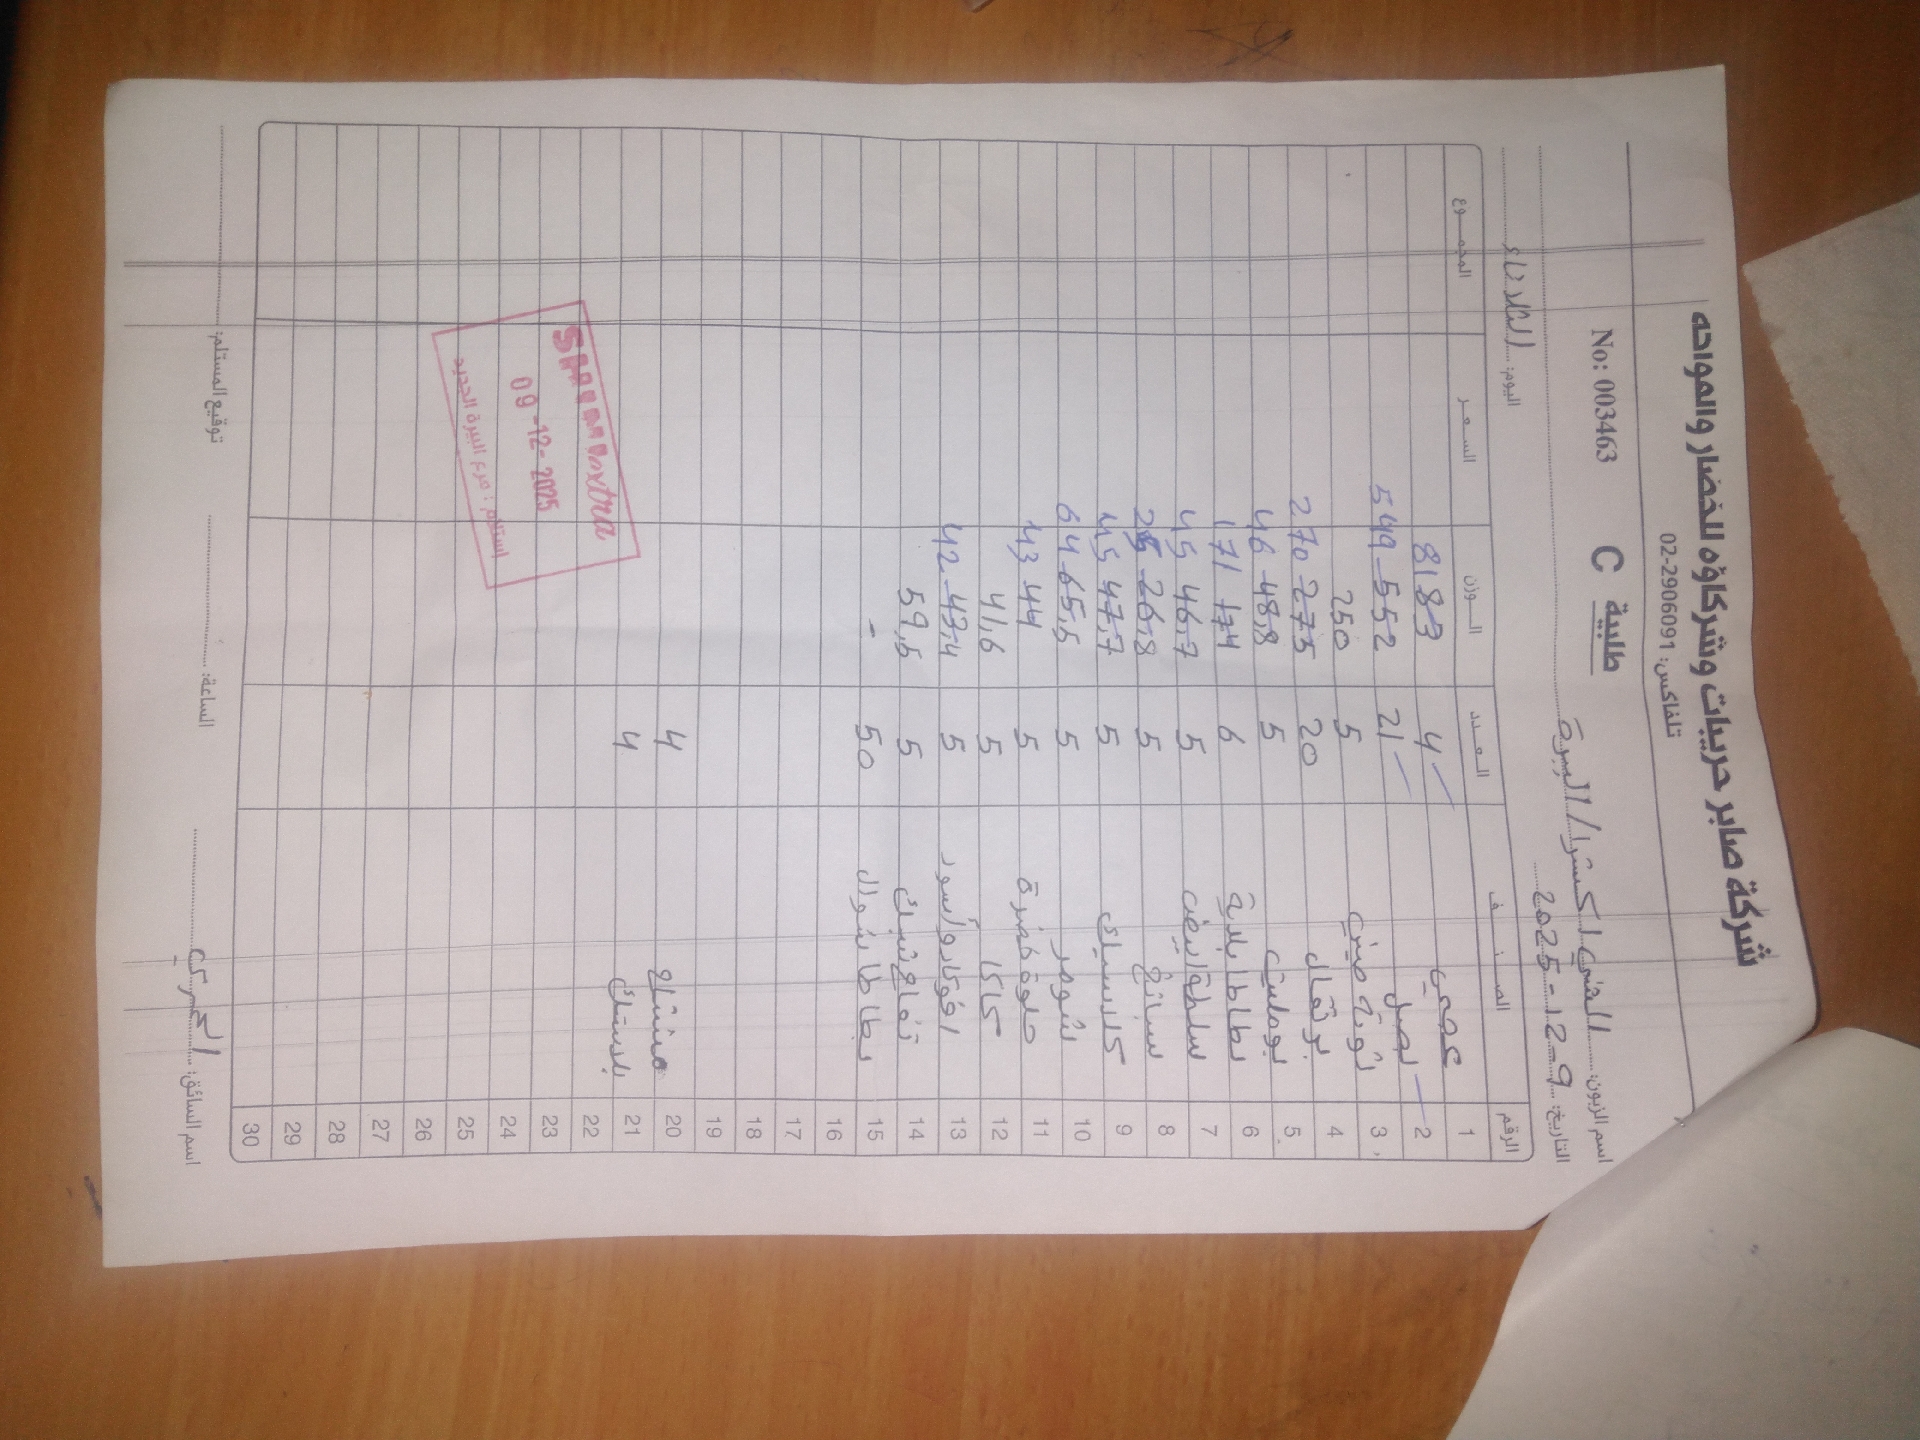 شركة صابر حريبات وشركاؤه للخضار والفواكه
تلفاكس: 02-2906091
No: 003463 C طلبية
اسم الزبون: الشني اكسترا / البيرة
التاريخ: 9-12-2025 اليوم: الثلاثاء
الرقم الصنف العدد الوزن السعر المجموع
1 عجمي 4 83 81
2 بصل 21 552 549
3 صيني 5 250
4 برتقال 20 275 270
5 بوملي 5 48,8 46
6 بطاطا بلدية 6 174 171
7 سلطة ابيض 5 46,7 45
8 سبانخ 5 26,8 25
9 كلاسيك 5 47,7 45
10 شومر 5 65,5 64
11 حلوة خضرة 5 44 43
12 كاكا 5 41,6
13 افوكادو أسود 5 43,4 42
14 تفاح 5 59,5
15 بطاطا شوال 50 -
16
17
18
19
20 مشتاح 4
21 بلاستك 4
22
23
24
25
26
27
28
29
30
extra
09-12-2025
إستلام : فرع البيرة الجديد
اسم السائق: الساعة: توقيع المستلم: